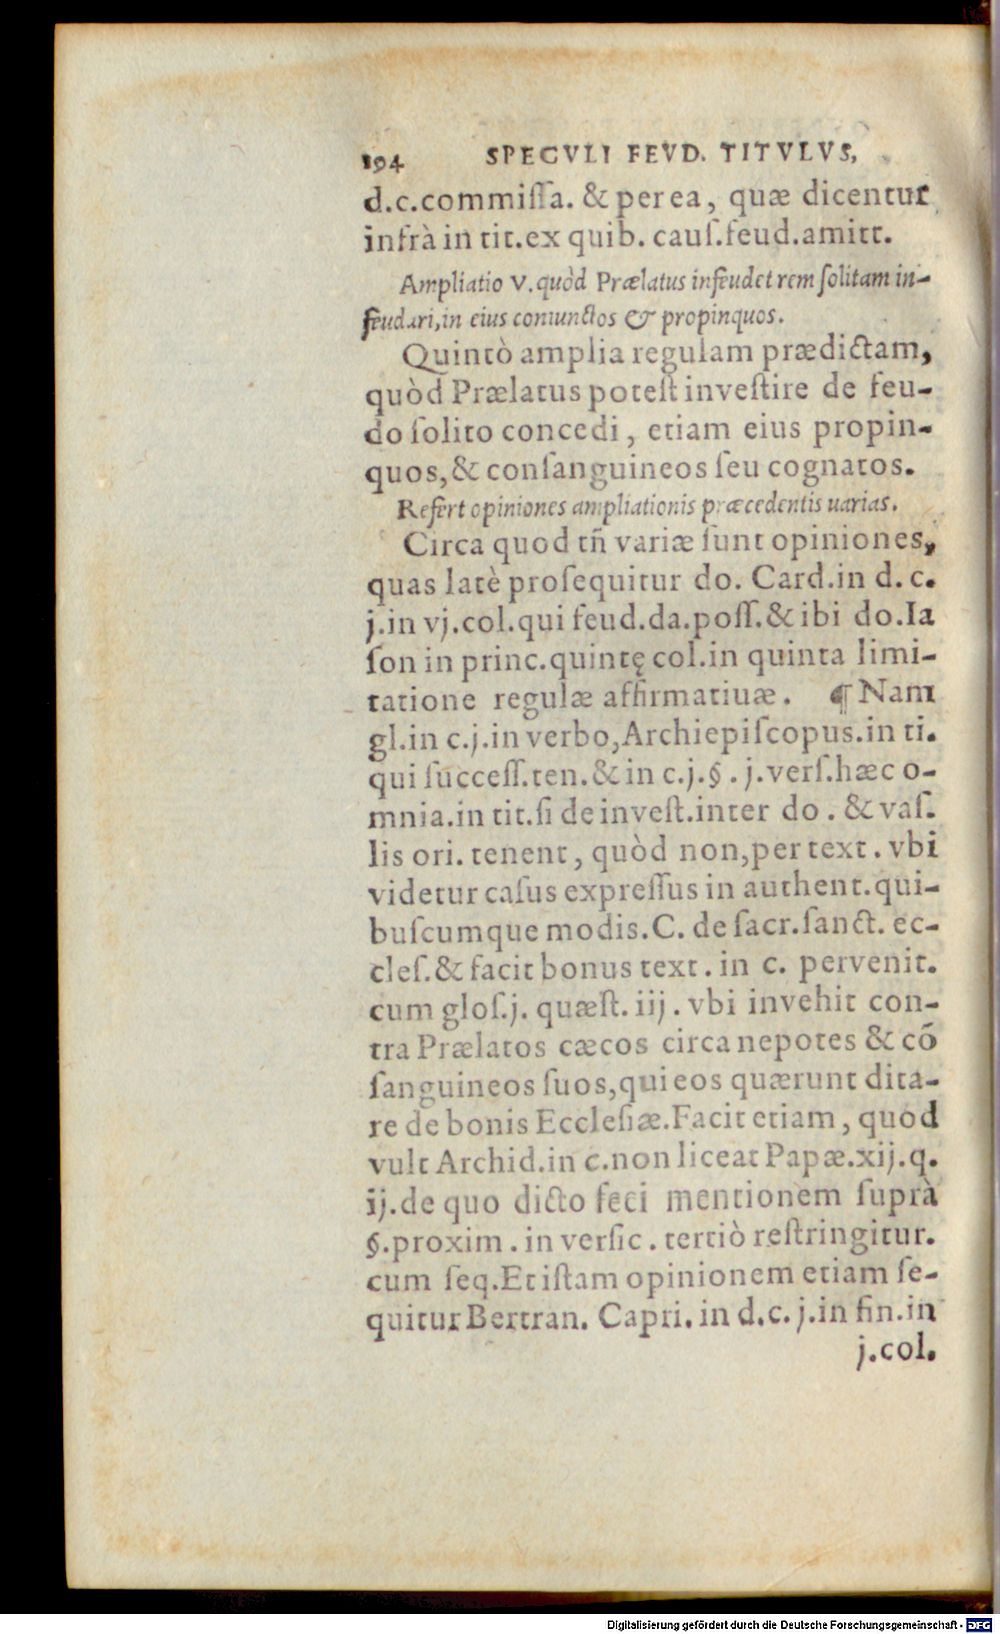 194 SPECVLI FEVD. TITVLVS,
d.c.commiſſa. & per ea, quæ dicentur
infrà in tit.ex quib. cauſ.feud.amitt.
Ampliatio V. quòd Prælatus infeudet rem ſolitam in-
feudari, in eius coniunctos & propinquos.
Quintò amplia regulam prædictam,
quòd Prælatus poteſt inveſtire de feu-
do ſolito concedi, etiam eius propin-
quos, & conſanguineos ſeu cognatos.
Refert opiniones ampliationis præcedentis uarias.
Circa quod tñ variæ ſunt opiniones,
quas latè proſequitur do. Card.in d. c.
j.in vj.col.qui feud.da.poſſ.& ibi do.Ia
ſon in princ.quintę col.in quinta limi-
tatione regulæ affirmatiuæ. ¶ Nam
gl.in c.j.in verbo,Archiepiſcopus.in ti.
qui ſucceſſ.ten.& in c.j.§. j.verſ.hæc o-
mnia.in tit.ſi de inveſt.inter do. & vaſ.
lis ori. tenent, quòd non,per text. vbi
videtur caſus expreſſus in authent.qui-
buſcumque modis.C. de ſacr.ſanct. ec-
cleſ.& facit bonus text. in c. pervenit.
cum gloſ.j. quæſt. iij. vbi invehit con-
tra Prælatos cæcos circa nepotes & cõ
ſanguineos ſuos,qui eos quærunt dita-
re de bonis Eccleſiæ.Facit etiam, quod
vult Archid.in c.non liceat Papæ.xij.q.
ij.de quo dicto feci mentionem ſuprà
§.proxim. in verſic. tertiò reſtringitur.
cum ſeq.Et iſtam opinionem etiam ſe-
quitur Bertran. Capri. in d.c. j.in fin.in
j.col.
Digitalisierung gefördert durch die Deutsche Forschungsgemeinschaft - DFG